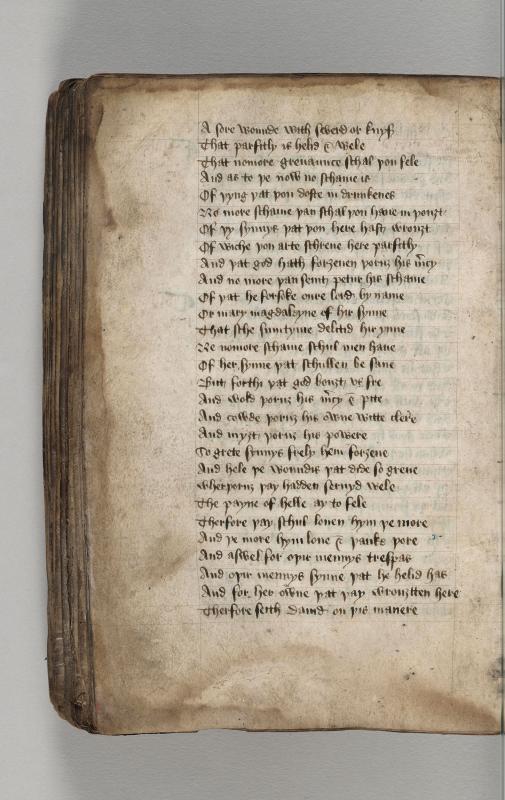 A sore wounde with swerd or knyf
That parfitly is helid & wele
That nomore grevaunce schal þou fele
And as to þe now no schame is
Of þyng þat þou doste in drunkenes
No more schame þan schal þou have in þouȝt
Of þy synnys þat þou here hast wrouȝt
Of wiche þou arte schreve here parfitly
And þat god hath forȝeven þoruȝ his m̄cy
And no more þan seint petur his schame
Of þat he forsoke oure lord by name
Or mary magdaleyne of hir synne
That sche sumtyme delitid hir ynne
Ne nomore schame schul men have
Of her synne þat schullen be save
But forthi þat god bouȝt us fre
And wold þoruȝ his m̄cy & pite
And cowde þoruȝ his owne witte clere
And myȝt þoruȝ his powere
So grete synnys frely hem forȝeve
And hele þe woundis þat dide so greve
Wherþoruȝ þay hadden servyd wele
The payne of helle ay to fele
Therfore þay schul loven hym þe more
And þe more hym love & þanke þore
And aswel for oþir mennys trespas
And oþir mennys synne þat he helid has
And for her owne þat þay wrouȝten here
Therfore seith David on þis manere